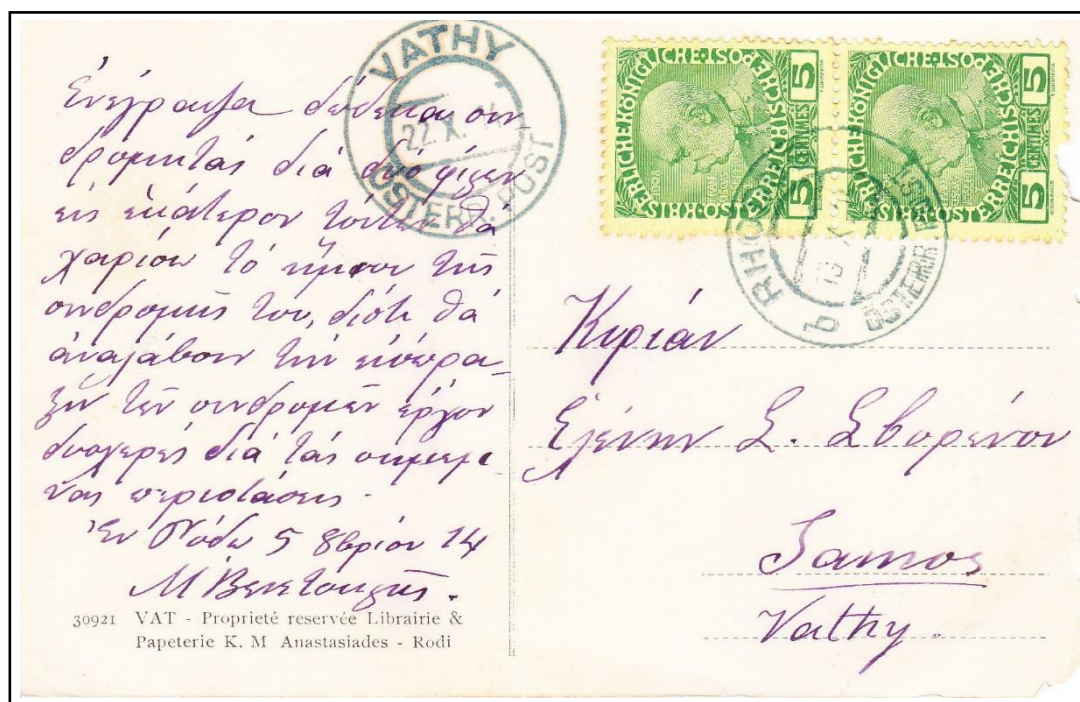 VATHY
22. X.
ÖSTERR. POST
KAISERLICHEKÖNIGLICHE·ÖSTERREICHISCHE·POST
5 CENTIMES 5
KAISERLICHEKÖNIGLICHE·ÖSTERREICHISCHE·POST
5 CENTIMES 5
RHODUS
ÖSTERR. POST
b
Ἐνέγραψα δώδεκα συν-
δρομητάς διά δύο
εἰς ἑκάτερον τούτων θά
χαρίσω τό ἥμισυ τῆς
συνδρομῆς του, διότι θά
ἀναλάβουν τήν εἴσπρα-
ξιν τῶν συνδρομῶν ἔργον
δυσχερές διά τάς σημερι-
νάς περιστάσεις.
Ἐν Ῥόδῳ 5 8βρίου 14
Μ Βενετοκλῆς.
30921 VAT - Proprieté reservée Librairie &
Papeterie K. M Anastasiades - Rodi
Κυρίαν
Ἑλένην Σ. Σβορώνου
Samos
Vathy.